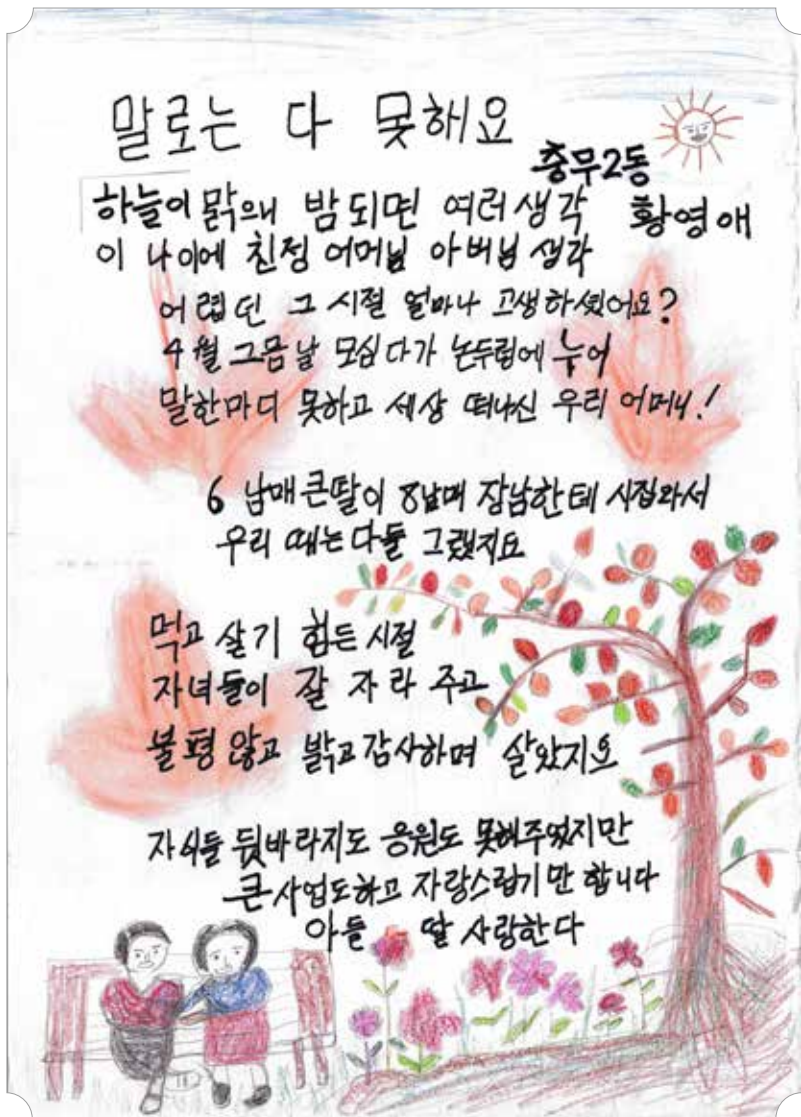 말로는 다 못해요
충무2동
황영애
하늘이 맑으니 밤 되면 여러생각
이 나이에 친정 어머님 아버님 생각
어렵던 그 시절 얼마나 고생하셨어요?
4월 그믐날 모심다가 논두렁에 누어
말한마디 못하고 세상 떠나신 우리 어머니!
6 남매 큰딸이 8남매 장남한테 시집와서
우리 때는 다들 그랬지요
먹고 살기 힘든 시절
자녀들이 잘 자라 주고
불평 않고 밝고 감사하며 살았지요
자식들 뒷바라지도 응원도 못해주었지만
큰사업도하고 자랑스럽기만 합니다
아들 딸 사랑한다